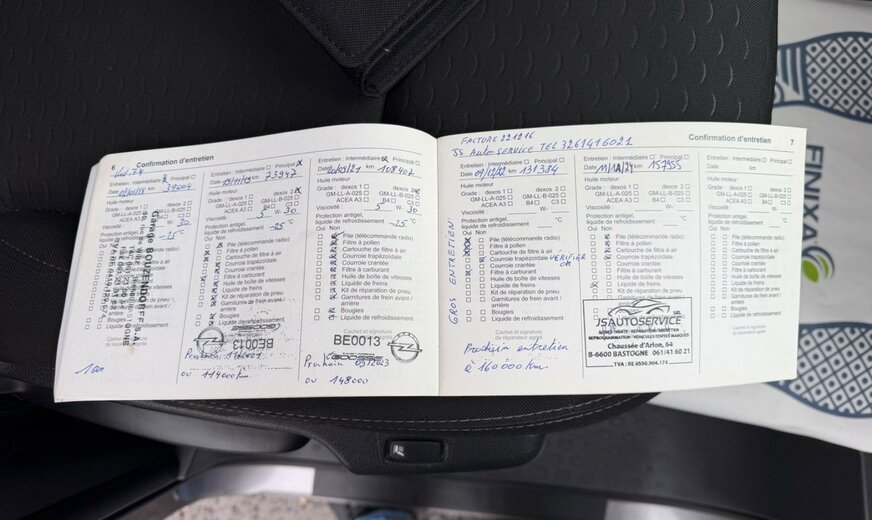 6 Confirmation d'entretien
Entretien : Intermédiaire Principal
Date km 39004
Huile moteur
Grade : dexos 1 dexos 2
GM-LL-A-025 GM-LL-B-025
ACEA A3 B4 C3
Viscosité 5 W- 30
Protection antigel,
liquide de refroidissement -25 °C
Oui Non
Liquide de refroidissement
Garage
BASTOGNE
1 an
Entretien : Intermédiaire Principal X
Date km 73947
Huile moteur
Grade : dexos 1 dexos 2
GM-LL-A-025 GM-LL-B-025
ACEA A3 B4 C3
Viscosité 5 W- 30
Protection antigel,
liquide de refroidissement -25 °C
Oui Non
Pile (télécommande radio)
Filtre à pollen
Cartouche de filtre à air
Courroie trapézoïdale
Courroie crantée
Filtre à carburant
Huile de boîte de vitesses
Liquide de freins
Kit de réparation de pneu
Garnitures de frein avant /
arrière
Bougies
Liquide de refroidissement
BE0013
ou 114000 km
Entretien : Intermédiaire Principal
Date km 108407
Huile moteur
Grade : dexos 1 dexos 2
GM-LL-A-025 GM-LL-B-025
ACEA A3 B4 C3
Viscosité 5 W- 30
Protection antigel,
liquide de refroidissement -25 °C
Oui Non
Pile (télécommande radio)
Filtre à pollen
Cartouche de filtre à air
Courroie trapézoïdale
Courroie crantée
Filtre à carburant
Huile de boîte de vitesses
Liquide de freins
Kit de réparation de pneu
Garnitures de frein avant /
arrière
Bougies
Liquide de refroidissement
Cachet et signature
du réparateur agréé
BE0013
Prochain
ou 148000
FACTURE 221216
JS AutoSERVICE TEL 3261416021
Confirmation d'entretien 7
GROS ENTRETIEN
Entretien : Intermédiaire Principal
Date 09/12/22 km 131334
Huile moteur
Grade : dexos 1 dexos 2
GM-LL-A-025 GM-LL-B-025
ACEA A3 B4 C3
Viscosité W-
Protection antigel,
liquide de refroidissement °C
Oui Non
Pile (télécommande radio)
Filtre à pollen
Cartouche de filtre à air
Courroie trapézoïdale VERIFIER
Courroie crantée OK
Filtre à carburant
Huile de boîte de vitesses
Liquide de freins
Kit de réparation de pneu
Garnitures de frein avant /
arrière
Bougies
Liquide de refroidissement
Cachet et signature
du réparateur agréé
Prochain entretien
à 160000 km
Entretien : Intermédiaire Principal
Date km 157955
Huile moteur
Grade : dexos 1 dexos 2
GM-LL-A-025 GM-LL-B-025
ACEA A3 B4 C3
Viscosité W-
Protection antigel,
liquide de refroidissement °C
Oui Non
Pile (télécommande radio)
Filtre à pollen
Cartouche de filtre à air
Courroie trapézoïdale
Courroie crantée
Filtre à carburant
Huile de boîte de vitesses
Liquide de freins
Kit de réparation de pneu
Garnitures de frein avant /
arrière
JSAUTOSERVICE SRL
VENTE - RÉPARATION - ENTRETIEN
REPROGRAMMATION - VÉHICULES TOUTES MARQUES
Chaussée d'Arlon, 64
B-6600 BASTOGNE 061/41 60 21
TVA : BE 0550.904.174
Entretien : Intermédiaire Principal
Date km
Huile moteur
Grade : dexos 1 dexos 2
GM-LL-A-025 GM-LL-B-025
ACEA A3 B4 C3
Viscosité W-
Protection antigel,
liquide de refroidissement °C
Oui Non
Pile (télécommande radio)
Filtre à pollen
Cartouche de filtre à air
Courroie trapézoïdale
Courroie crantée
Filtre à carburant
Huile de boîte de vitesses
Liquide de freins
Kit de réparation de pneu
Garnitures de frein avant /
arrière
Bougies
Liquide de refroidissement
Cachet et signature
du réparateur agréé
FINIXA